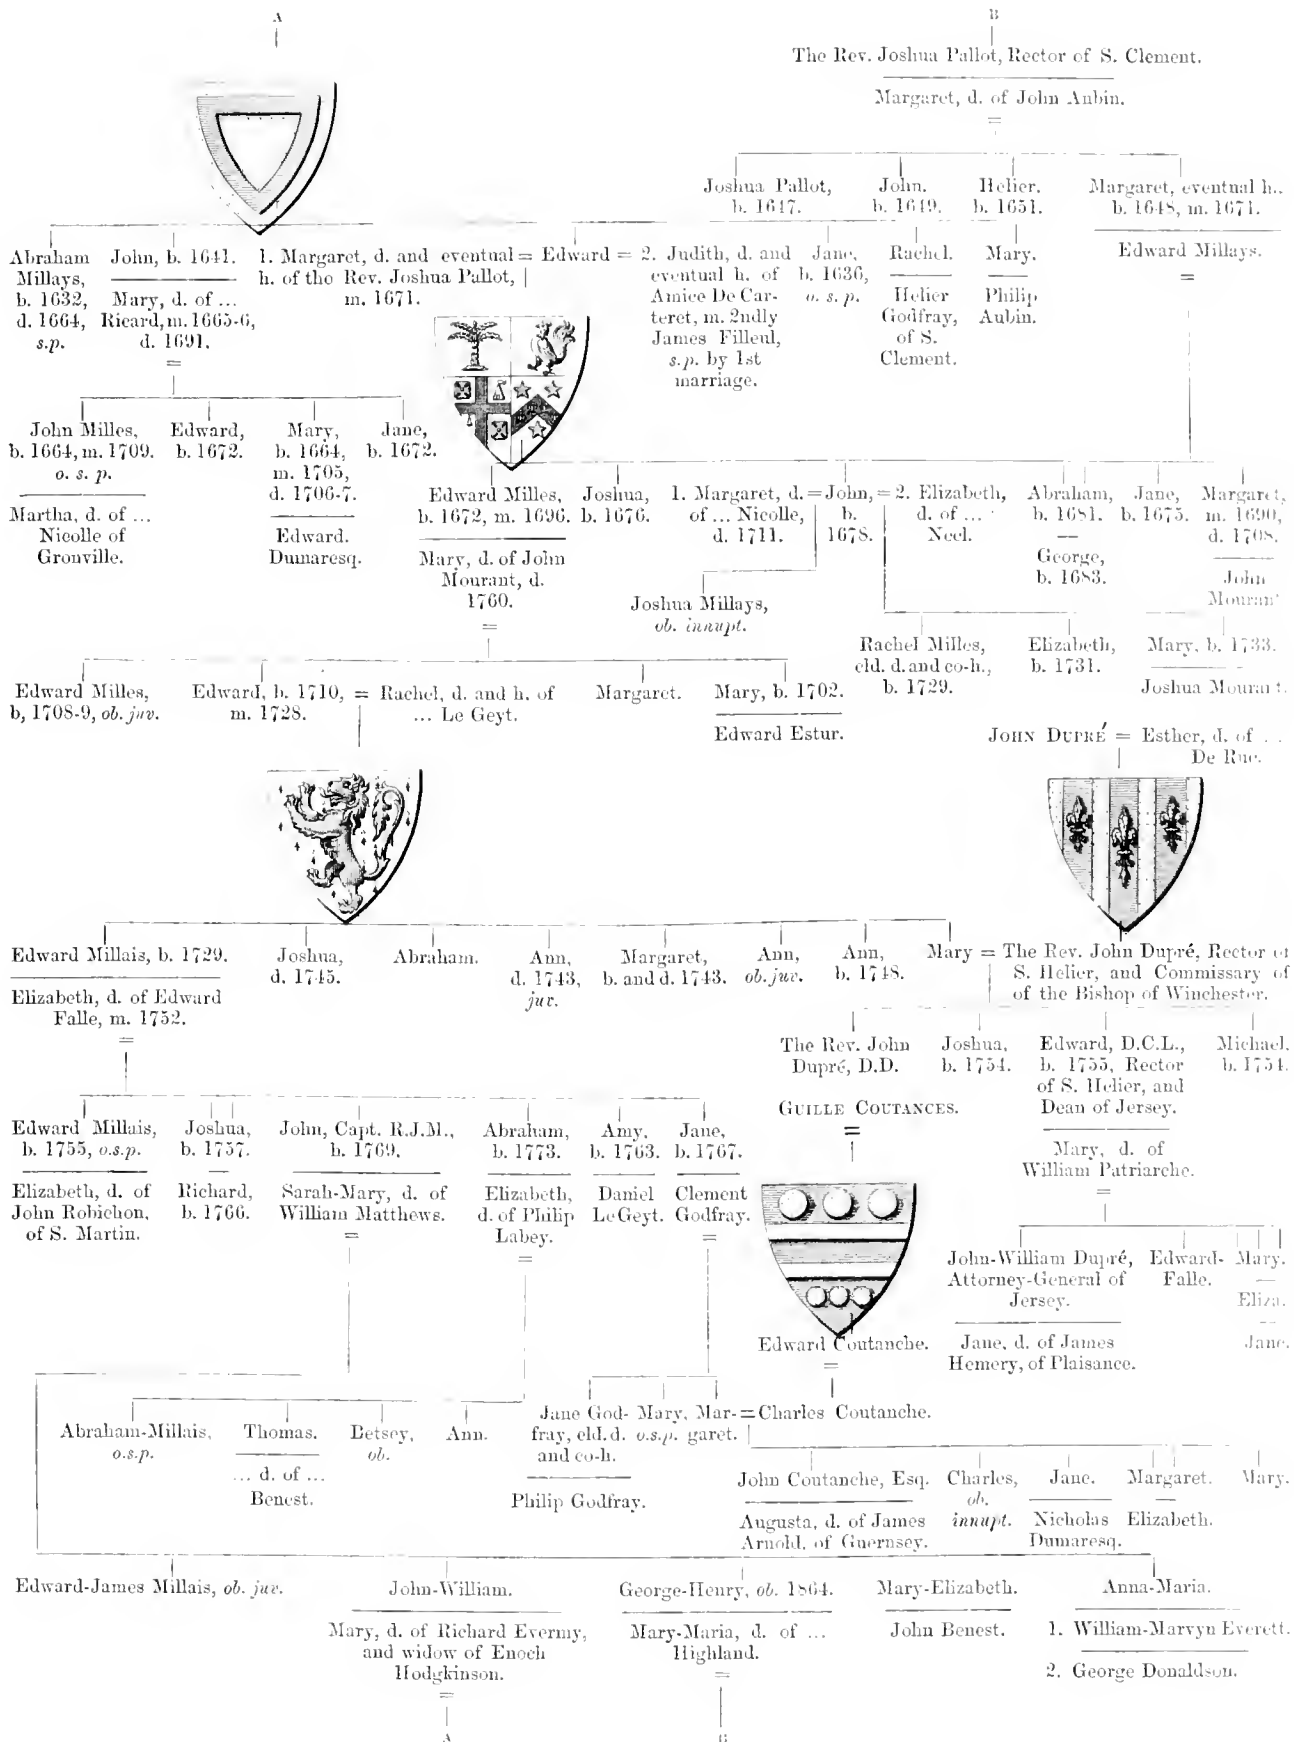 A
B
The Rev. Joshua Pallot, Rector of S. Clement.
Margaret, d. of John Aubin.
=
Joshua Pallot,
b. 1647.
John.
b. 1649.
Helier.
b. 1651.
Margaret, eventual h..
b. 1648, m. 1671.
Edward Millays.
=
Abraham
Millays,
b. 1632,
d. 1664,
s.p.
John, b. 1641.
Mary, d. of ...
Ricard, m. 1665-6,
d. 1691.
=
1. Margaret, d. and eventual = Edward = 2. Judith, d. and
h. of the Rev. Joshua Pallot,
m. 1671.
eventual h. of
Amice De Car-
teret, m. 2ndly
James Filleul,
s.p. by 1st
marriage.
Jane,
b. 1636,
o. s. p.
Rachel.
Helier
Godfray,
of S.
Clement.
Mary.
Philip
Aubin.
John Milles,
b. 1664, m. 1709.
o. s. p.
Martha, d. of ...
Nicolle of
Gronville.
Edward,
b. 1672.
Mary,
b. 1664,
m. 1705,
d. 1706-7.
Edward.
Dumaresq.
Jane,
b. 1672.
Edward Milles,
b. 1672, m. 1696.
Mary, d. of John
Mourant, d.
1760.
=
Joshua,
b. 1676.
1. Margaret, d. = John, = 2. Elizabeth,
of ... Nicolle,
d. 1711.
b.
1678.
d. of ...
Neel.
Abraham,
b. 1681.
George,
b. 1683.
Jane,
b. 1675.
Margaret,
m. 1690,
d. 1708.
John
Mourant
Joshua Millays,
ob. innupt.
Rachel Milles,
eld. d. and co-h.,
b. 1729.
Elizabeth,
b. 1731.
Mary, b. 1733.
Joshua Mourant.
Edward Milles,
b, 1708-9, ob. juv.
Edward, b. 1710, = Rachel, d. and h. of
m. 1728.
... Le Geyt.
Margaret.
Mary, b. 1702.
Edward Estur.
JOHN DUPRÉ = Esther, d. of ..
De Rue.
Edward Millais, b. 1729.
Elizabeth, d. of Edward
Falle, m. 1752.
=
Joshua,
d. 1745.
Abraham.
Ann,
d. 1743,
juv.
Margaret,
b. and d. 1743.
Ann,
ob. juv.
Ann,
b. 1748.
Mary = The Rev. John Dupré, Rector of
S. Helier, and Commissary of
of the Bishop of Winchester.
The Rev. John
Dupré, D.D.
Joshua,
b. 1754.
Edward, D.C.L.,
b. 1755, Rector
of S. Helier, and
Dean of Jersey.
Mary, d. of
William Patriarche.
=
Michael.
b. 1754.
GUILLE COUTANCES.
=
Edward Millais,
b. 1755, o.s.p.
Elizabeth, d. of
John Robichon,
of S. Martin.
Joshua,
b. 1757.
Richard,
b. 1766.
John, Capt. R.J.M.,
b. 1769.
Sarah-Mary, d. of
William Matthews.
=
Abraham,
b. 1773.
Elizabeth,
d. of Philip
Labey.
=
Amy,
b. 1763.
Daniel
LeGeyt.
Jane,
b. 1767.
Clement
Godfray.
=
John-William Dupré,
Attorney-General of
Jersey.
Jane, d. of James
Hemery, of Plaisance.
Edward-
Falle.
Mary.
Eliza.
Jane.
Edward Coutanche.
=
Abraham-Millais,
o.s.p.
Thomas.
... d. of ...
Benest.
Betsey,
ob.
Ann.
Jane God-
fray, eld. d.
and co-h.
Philip Godfray.
Mary,
o.s.p.
Mar- = Charles Coutanche.
garet.
John Coutanche, Esq.
Augusta, d. of James
Arnold, of Guernsey.
Charles,
ob.
innupt.
Jane.
Nicholas
Dumaresq.
Margaret.
Elizabeth.
Mary.
Edward-James Millais, ob. juv.
John-William.
Mary, d. of Richard Evermy,
and widow of Enoch
Hodgkinson.
=
A
George-Henry, ob. 1864.
Mary-Maria, d. of ...
Highland.
=
Mary-Elizabeth.
John Benest.
Anna-Maria.
1. William-Marvyn Everett.
2. George Donaldson.